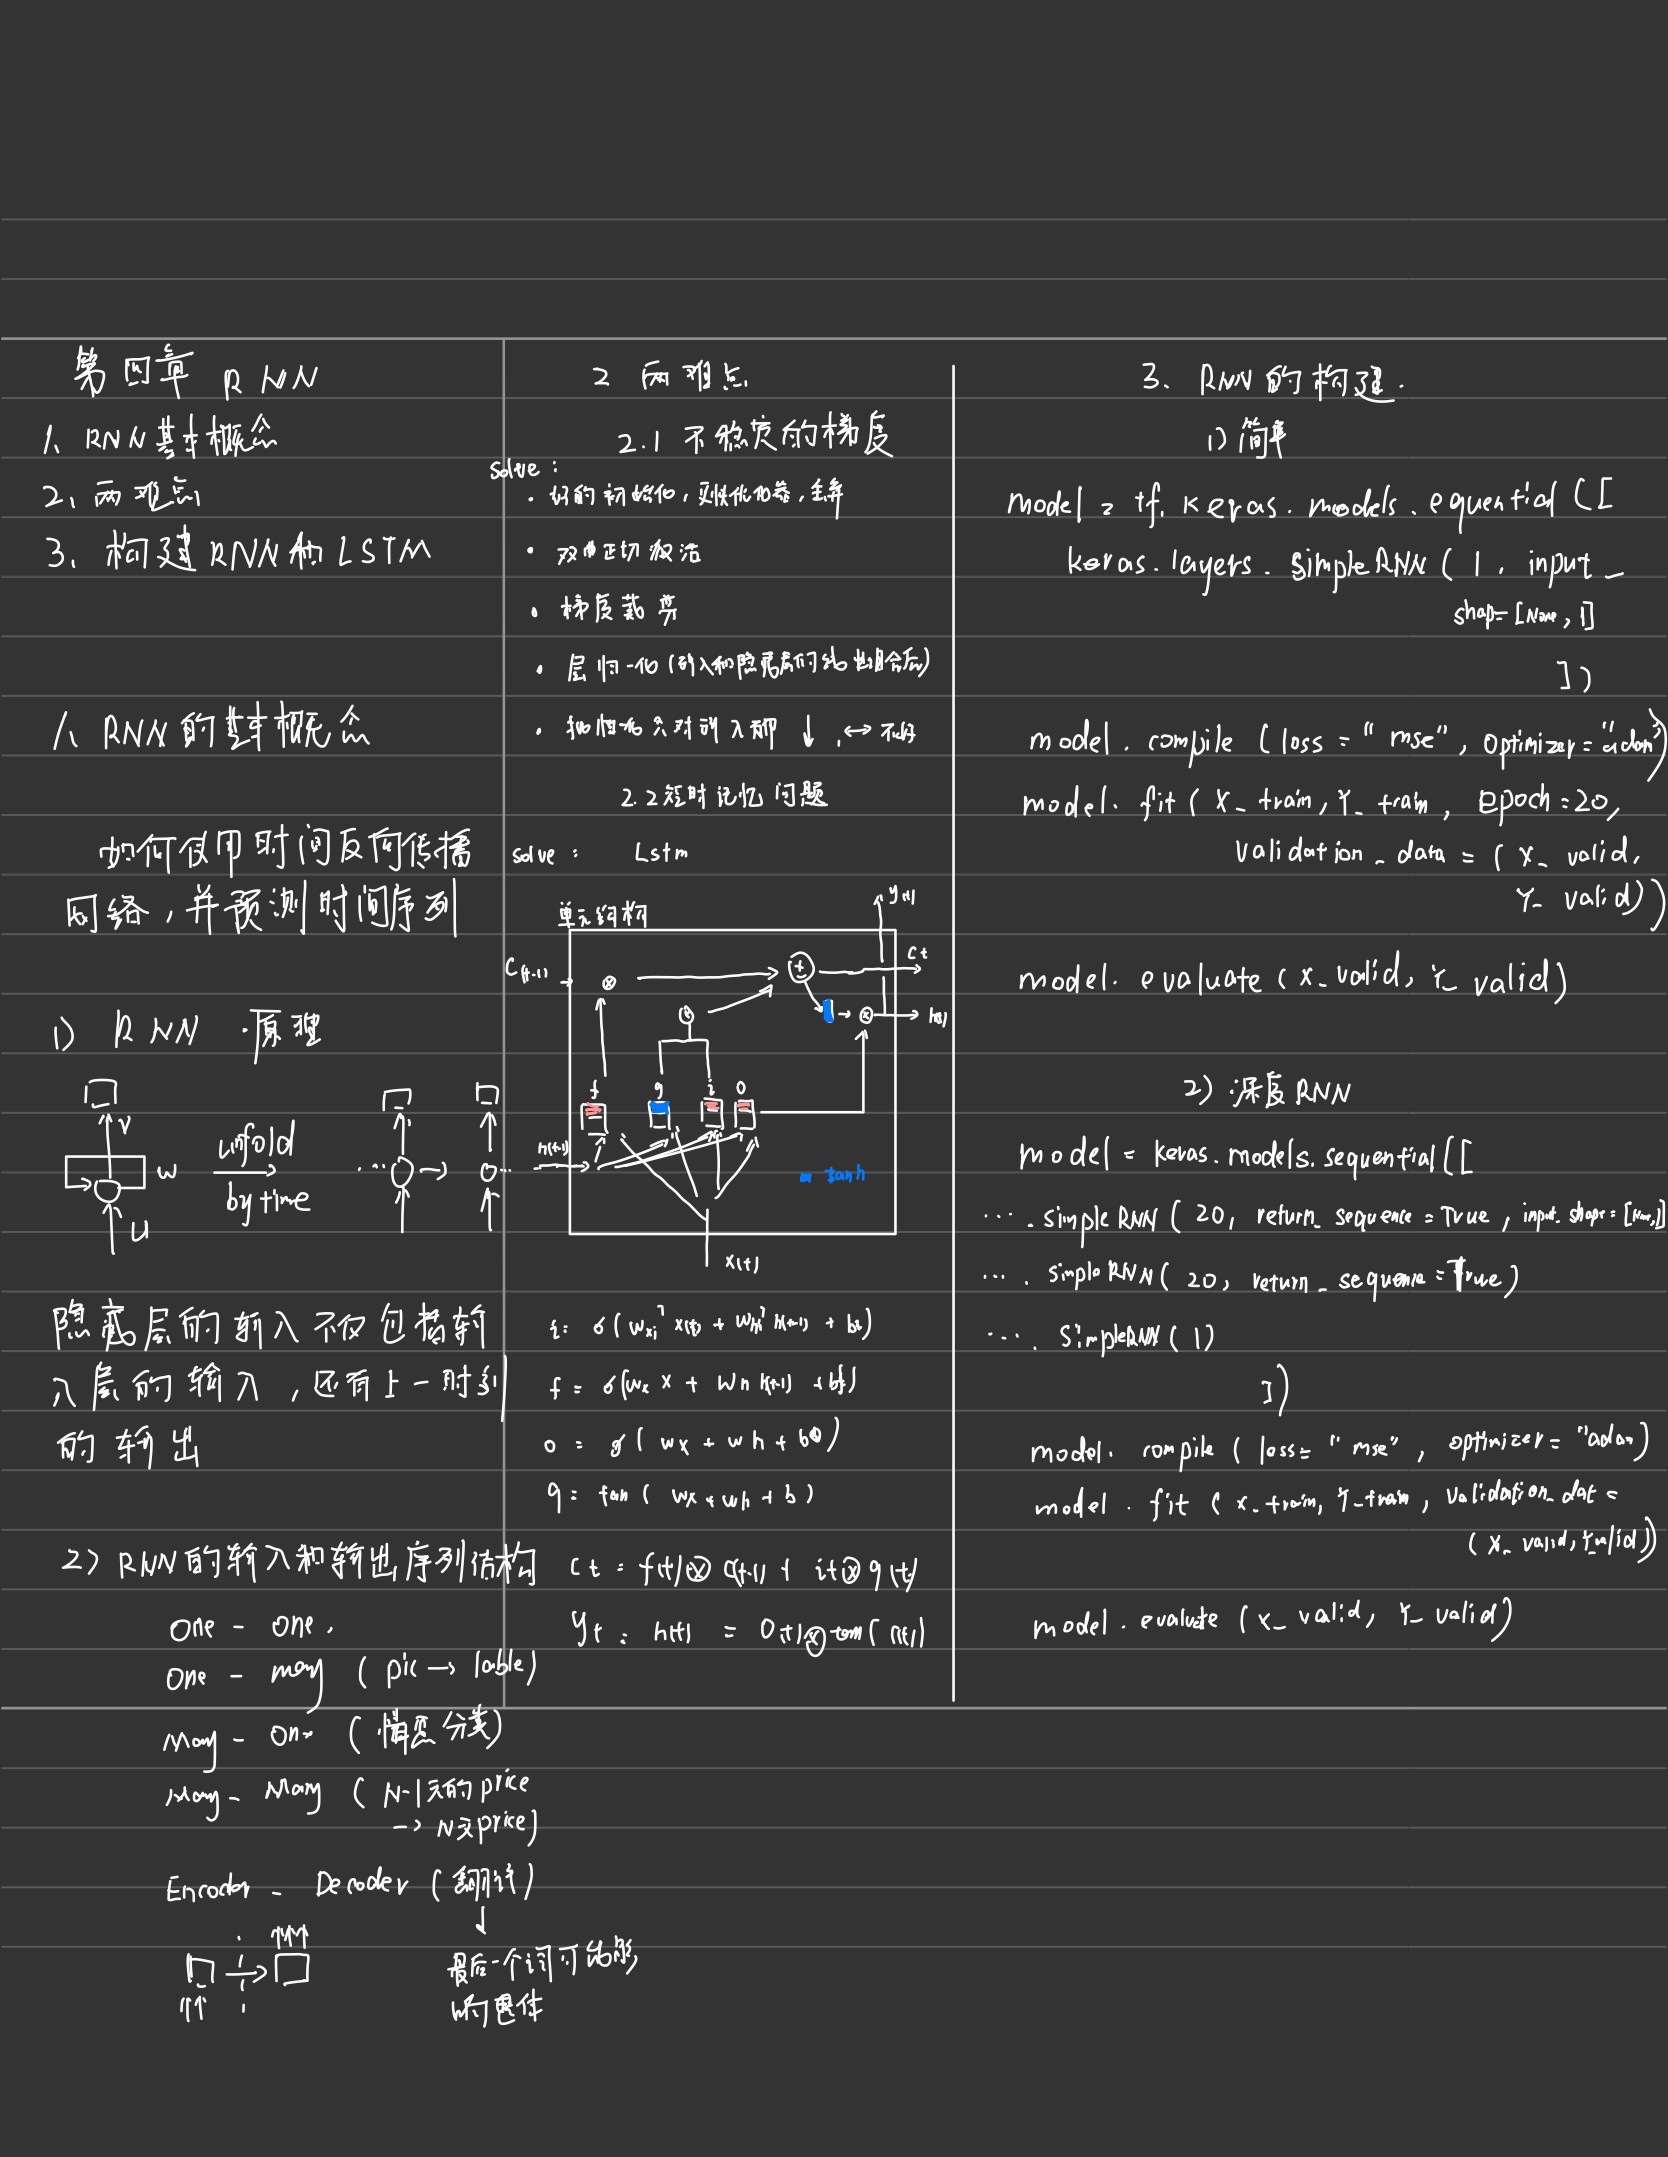 第四章 RNN
1、RNN基本概念
2、两难点
3、构建RNN和LSTM
1、RNN的基本概念
如何使用时间反向传播
网络，并预测时间序列
1) RNN 原理
V
W
U
unfold
by time
隐藏层的输入不仅包括输
入层的输入，还有上一时刻
的输出
2) RNN的输入和输出序列结构
one - one,
one - many (pic → lable)
Many - One (情感分类)
Many - Many (N-1天的price
→ N天price)
Encoder - Decoder (翻译)
最后一个词可能影
响整体
2 两难点
2.1 不稳定的梯度
solve:
· 好的初始化，更快优化器，丢弃
· 双曲正切激活
· 梯度裁剪
· 层归一化(输入和隐藏层的输出组合后)
· 批归一化只对输入有用 ↓, ↔ 不好
2.2 短时记忆问题
solve: Lstm
单元结构
y(t)
C(t-1)
Ct
h(t)
f g i o
h(t-1)
tanh
x(t)
i = σ(Wxi^T x(t) + Whi^T h(t-1) + bi)
f = σ(Wx x + Wh h(t-1) + bf)
o = σ(wx + wh + bo)
g = tan(wx + wh + b)
Ct = f(t) ⊗ C(t-1) + it ⊗ g(t)
yt = h(t) = O(t) ⊗ tan(C(t))
3、RNN的构建.
1) 简单
model = tf.keras.models.equential([
keras.layers.SimpleRNN(1, input_
shap=[None,1]
])
model.compile(loss="mse", optimizer="adam")
model.fit(X_train, Y_train, epoch=20,
Validation_data=(X_valid,
Y_valid))
model.evaluate(X_valid, Y_valid)
2) 深度RNN
model = keras.models.sequential([
....simpleRNN(20, return_sequence=True, input_shape=[None,1])
....simpleRNN(20, return_sequence=True)
....SimpleRNN(1)
])
model.compile(loss="mse", optimizer="adam)
model.fit(X_train, Y_train, Validation_dat=
(X_valid, Y_valid))
model.evaluate(X_valid, Y_valid)